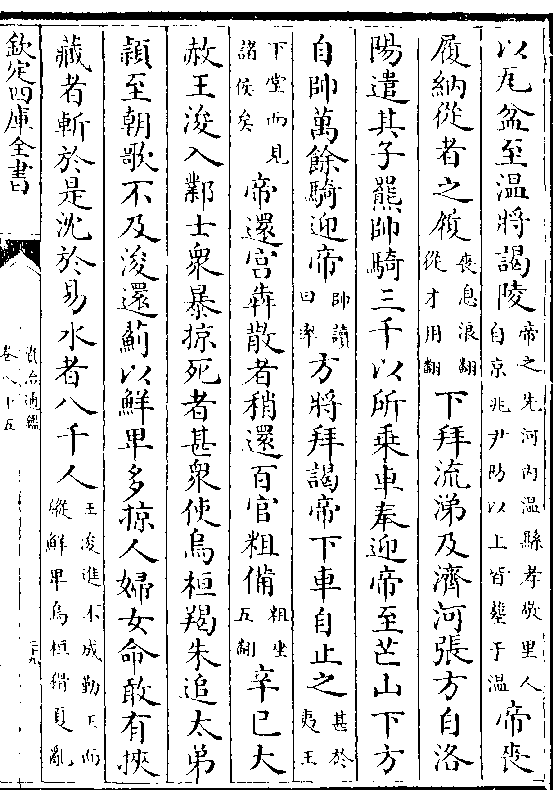 以瓦盆至温將謁陵帝之先河内温縣孝敬里人自京兆尹防以上皆塟于温帝喪
履納從者之履喪息浪翻從才用翻下拜流涕及濟河張方自洛
陽遣其子羆帥騎三千以所乘車奉迎帝至芒山下方
自帥萬餘騎迎帝帥讀曰率方將拜謁帝下車自止之甚於夷王
下堂而見諸侯矣帝還宫犇散者稍還百官粗備粗坐五翻辛巳大
赦王浚入鄴士衆暴掠死者甚衆使烏桓羯朱追太弟
穎至朝歌不及浚還薊以鮮卑多掠人婦女命敢有挾
藏者斬於是沈於易水者八千人王浚進不成勤王而縱鮮卑烏桓猾夏亂
欽定四庫全書
資治通鑑
卷八十五